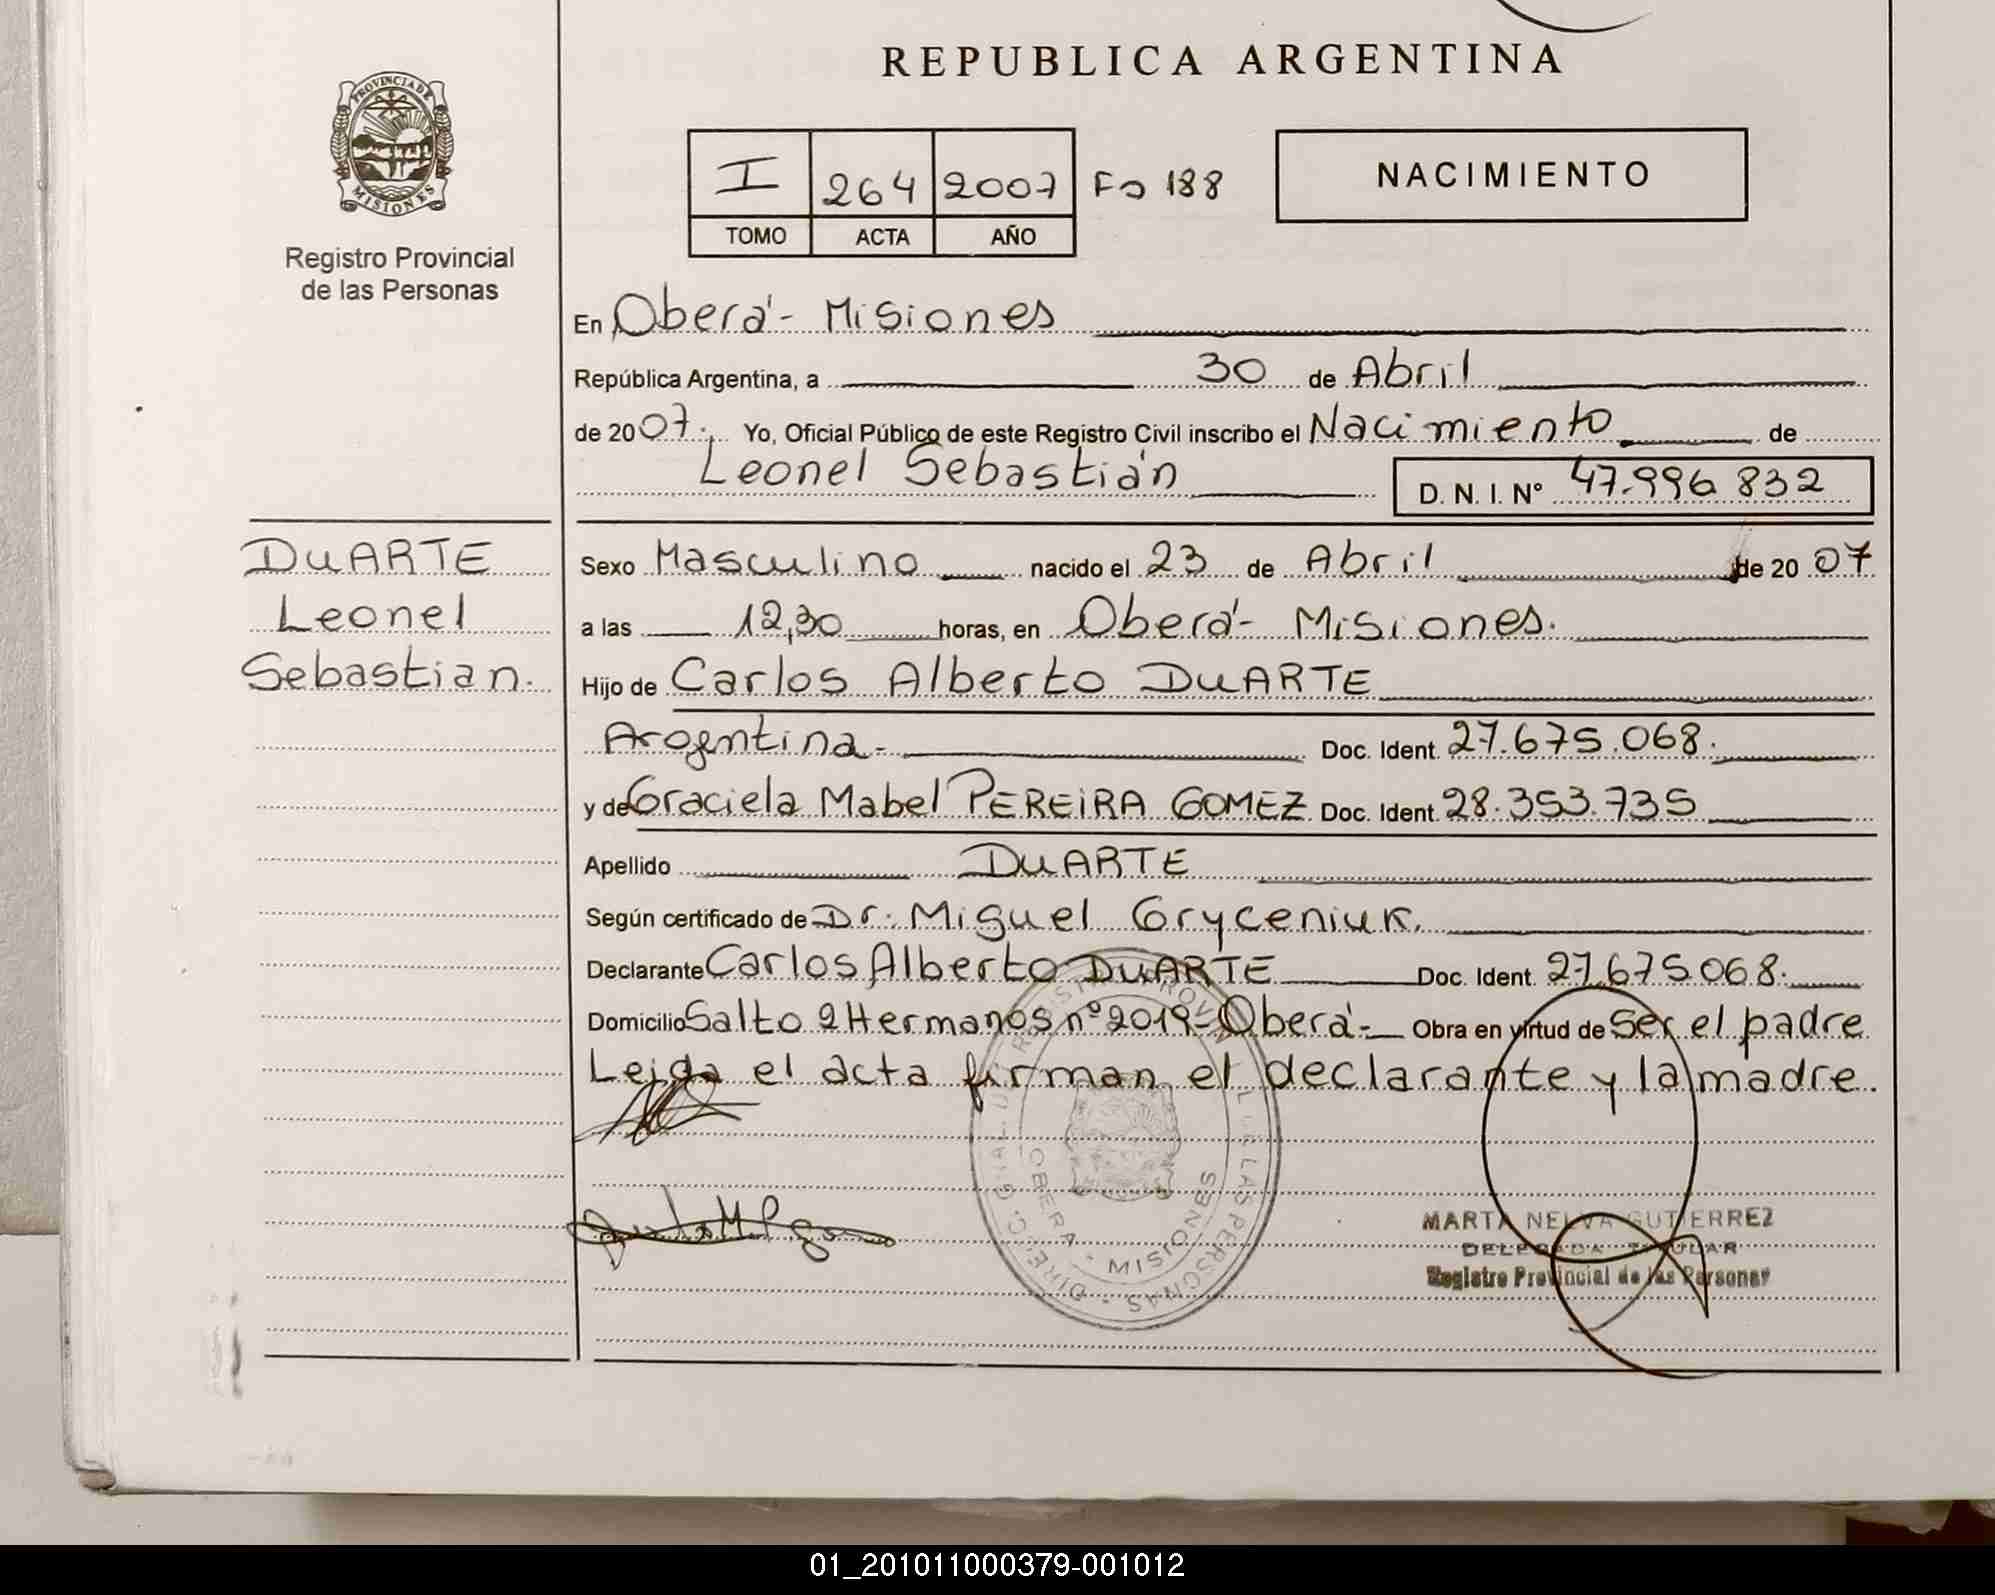 REPUBLICA ARGENTINA
PROVINCIA DE
MISIONES
Registro Provincial
de las Personas
I 264 2007 Fo 188
TOMO ACTA AÑO
NACIMIENTO
En Oberá - Misiones
República Argentina, a 30 de Abril
de 2007. Yo, Oficial Público de este Registro Civil inscribo el Nacimiento de
Leonel Sebastián D. N. I. Nº 47.996 832
DUARTE
Leonel
Sebastian.
Sexo Masculino nacido el 23 de Abril de 2007
a las 12,30 horas, en Oberá - Misiones.
Hijo de Carlos Alberto DUARTE
Argentina - Doc. Ident. 27.675.068.
y de Graciela Mabel PEREIRA GOMEZ Doc. Ident. 28.353.735
Apellido DUARTE
Según certificado de Dr. Miguel Gryceniuk.
Declarante Carlos Alberto DUARTE Doc. Ident. 27.675.068.
Domicilio Salto 2 Hermanos nº 2019 - Oberá - Obra en virtud de ser el padre
Leida el acta firman el declarante y la madre.
OBERA - MISIONES
MARTA NELVA GUTIERREZ
DELEGADA TITULAR
Registro Provincial de las Personas
01_201011000379-001012